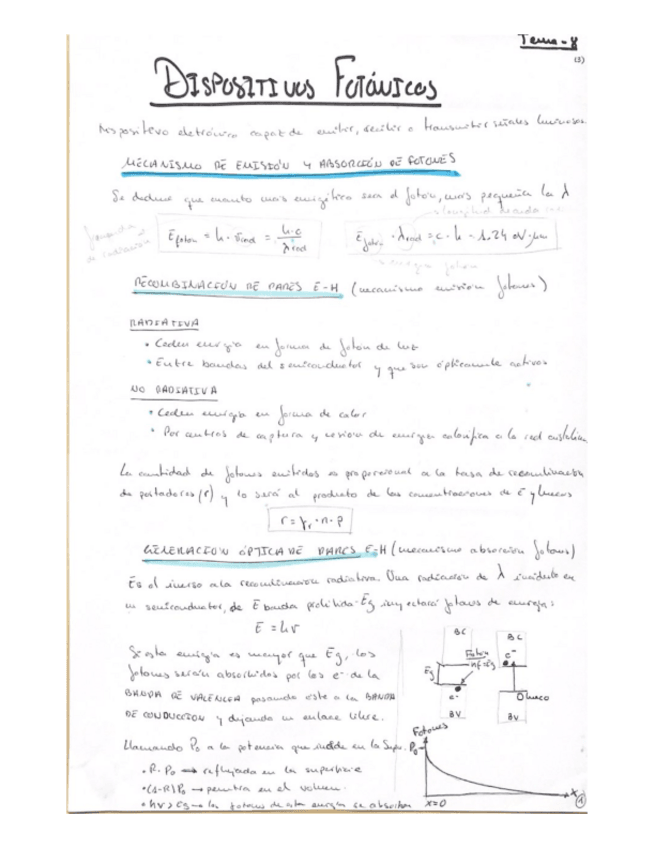 Tema-8
(3)
DISPOSITIVOS FOTÓNICOS
Dispositivo eletrónico capaz de emitir, recibir o transmitir señales luminosas
MECANISMO DE EMISIÓN Y ABSORCIÓN DE FOTONES
Se deduce que cuanto más energético sea el fotón, más pequeña la λ
longitud de onda
frecuencia de radiación
E fotón = h · νrad = h·c / λrad
E fotón · λrad = c · h = 1.24 eV·μm
energía fotón
RECOMBINACIÓN DE PARES E-H (mecanismo emisión fotones)
RADIATIVA
• Ceden energía en forma de fotón de luz
• Entre bandas del semiconductor y que son ópticamente activos
NO RADIATIVA
• Ceden energía en forma de calor
• Por centros de captura y cesión de energía calorífica a la red cristalina
La cantidad de fotones emitidos es proporcional a la tasa de recombinación
de portadores (r) y lo será al producto de las concentraciones de e⁻ y huecos
r = γr · n · p
GENERACIÓN ÓPTICA DE PARES E-H (mecanismo absorción fotones)
Es el inverso a la recombinación radiativa. Una radiación de λ incidente en
un semiconductor, de E banda prohibida Eg inyectará fotones de energía:
E = hν
Si esta energía es mayor que Eg, los
fotones serán absorbidos por los e⁻ de la
BANDA DE VALENCIA pasando este a la BANDA
DE CONDUCCIÓN y dejando un enlace libre.
BC
BC
Eg
Fotón
hf=Eg
e⁻
e⁻
Hueco
BV
BV
Llamando P₀ a la potencia que incide en la Sup.
• R·P₀ → reflejada en la superficie
• (1-R)P₀ → penetra en el volumen.
• hν > Eg → los fotones de alta energía se absorben
Fotones
P₀
x=0
x
1